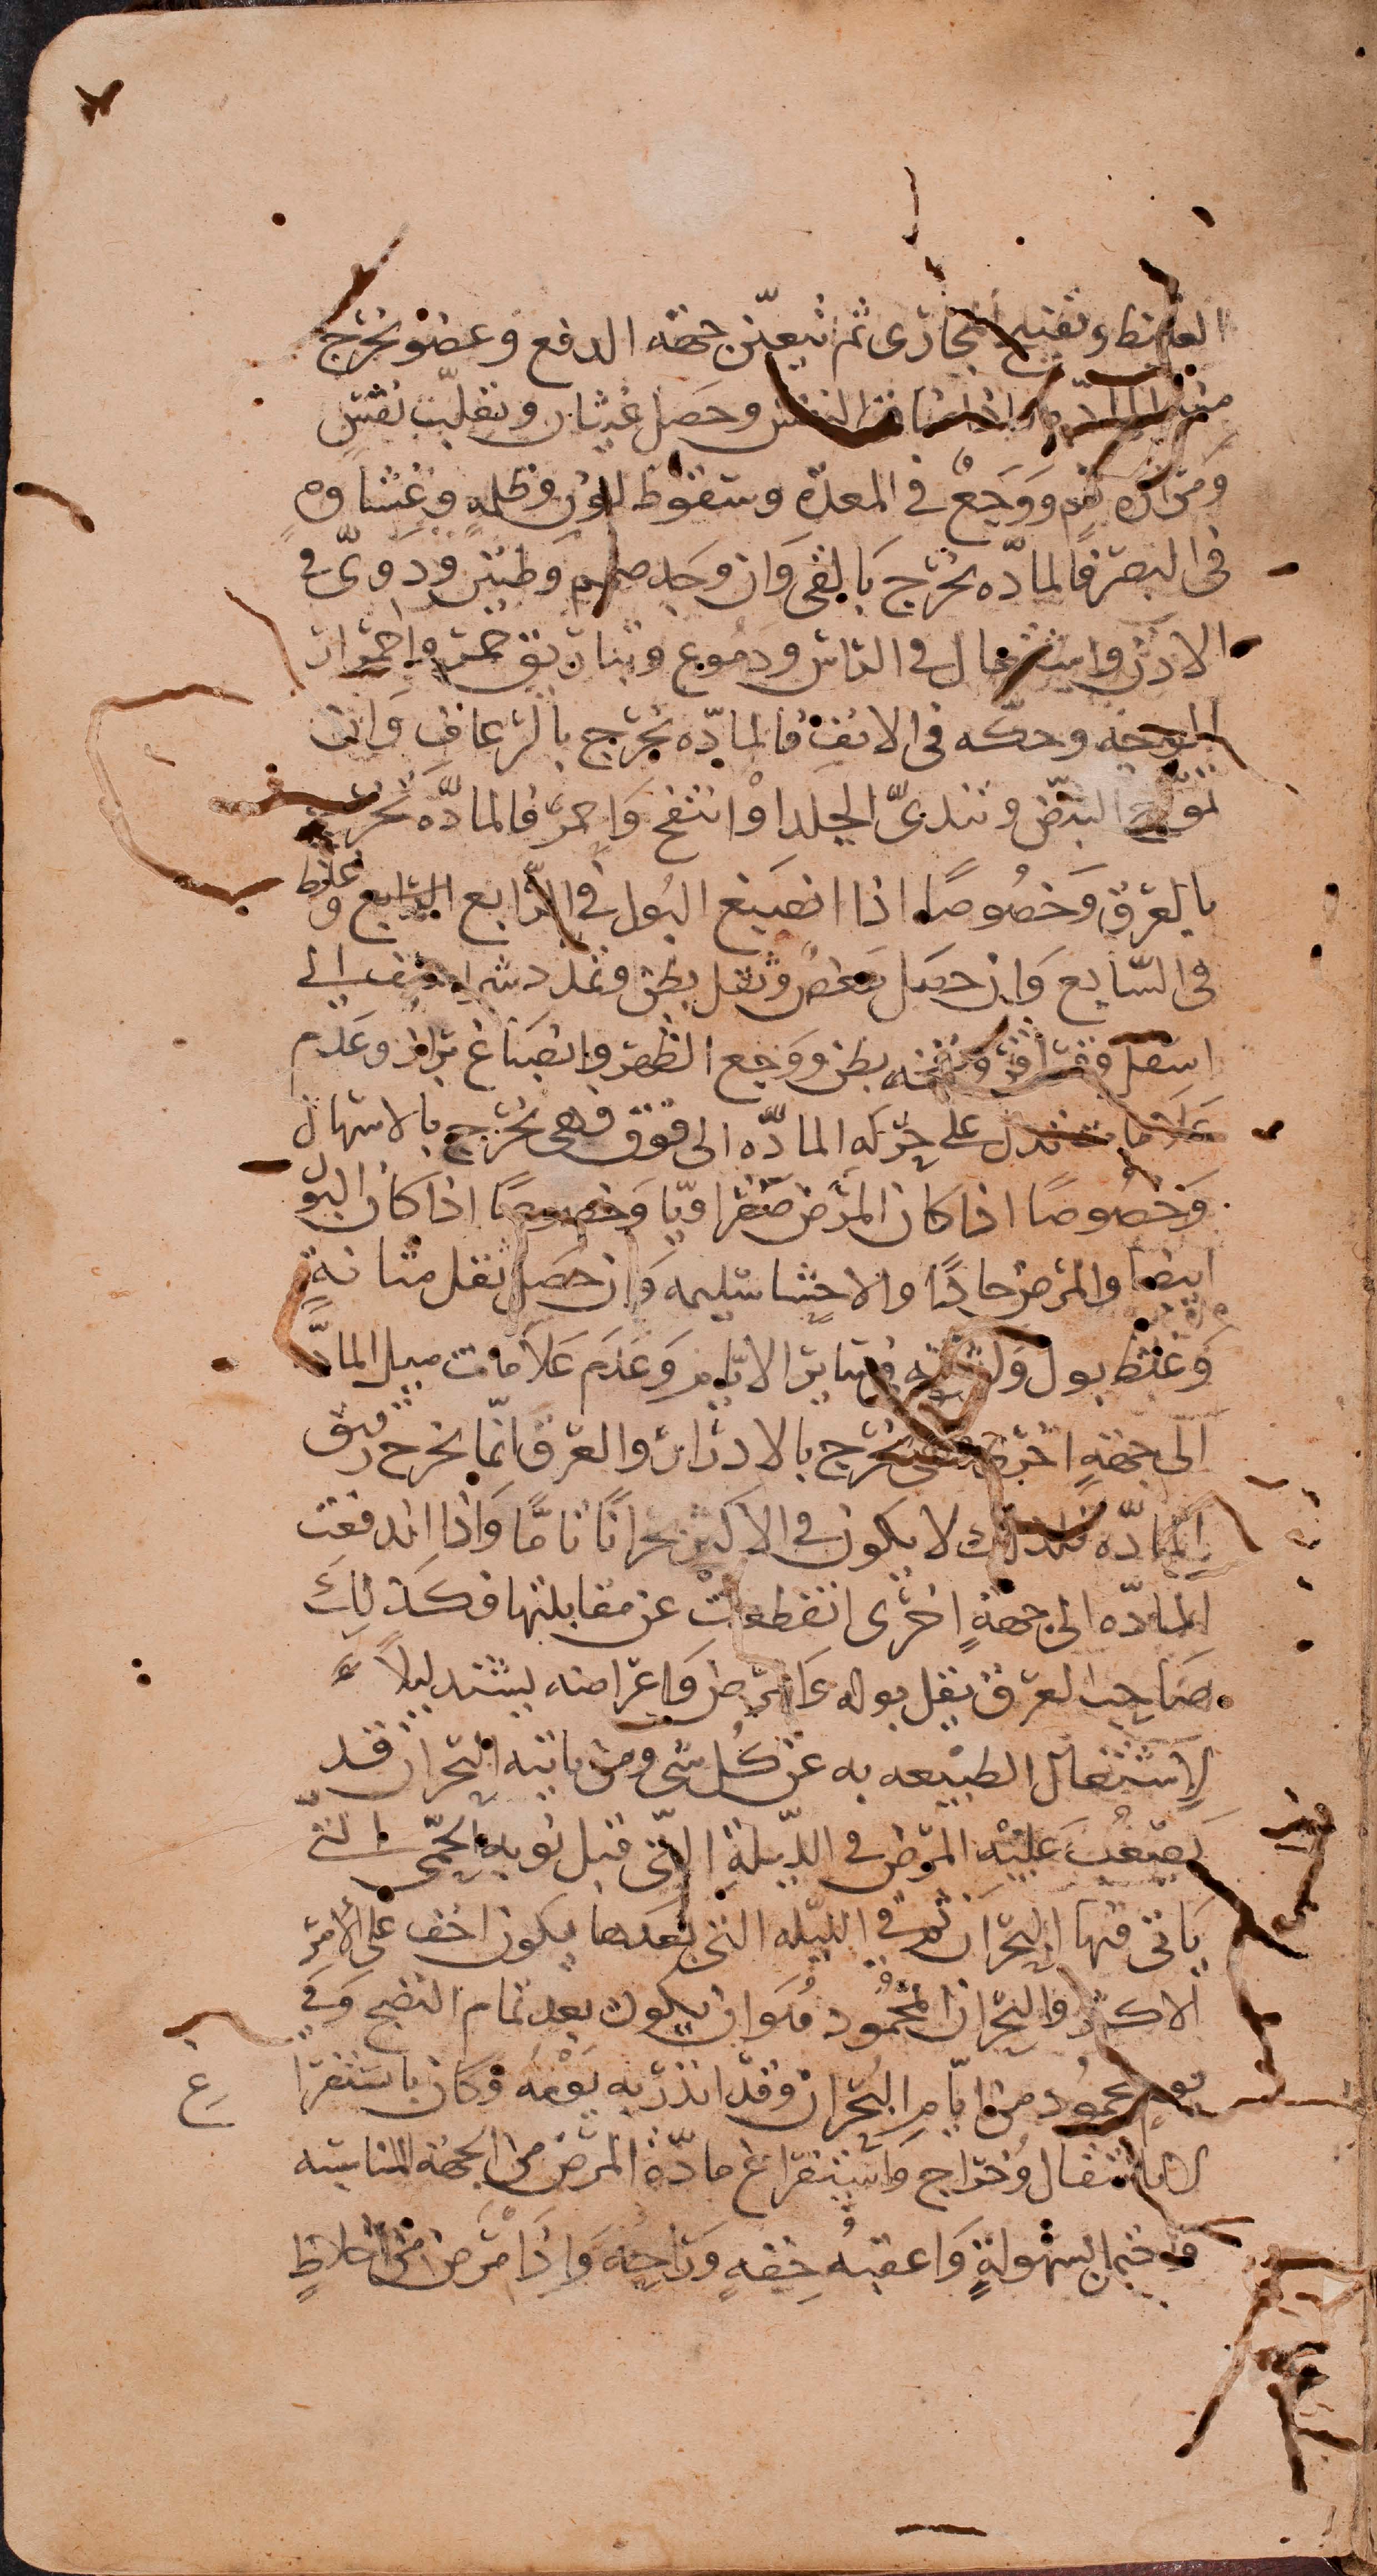 الغليظ وتفتيح المجارى ثم تتعيّن جهة الدفع وعضو تخرج
منه المادّه فاذا ضاق النفس وحصل غثيان وتقلّب نفس
ومرارة فم ووجع فى المعدة وسقوط لون وظلمه وغشاوه
فى البصر فالمادّه تخرج بالقى وان وجد صمم وطنين ودوىّ فى
الاذن واشتعال فى الراس ودموع وتباريق حمر واحمرار
الوجه وحكّه فى الانف فالمادّه تخرج بالرعاف وان
تموّج النبض وتندىّ الجلد او انتفخ واحمرّ فالمادّه تخرج
بالعرق وخصوصًا اذا انصبغ البول فى الرّابع وغلظ
فى السّابع وان حصل مغص وثقل بطن وتمدد شراسيف الى
اسفل وقراقر ونفخه بطن ووجع الظهر وانصباغ براز وعدم
علامات تدل على حركه المادّه الى فوق فهى تخرج بالاسهال
وخصوصًا اذا كان المرض صفراويّا وخصوصًا اذا كان البول
ابيضا والمرض حادًا والاحشا سليمه وان حصل ثقل مثانةٍ
وغلظ بول فى ساير الايّام وعدم علامات ميل المادّه
الى جهةٍ اخرى فهى تخرج بالادرار والعرق انّما يخرج رقيق
المادّه فلذلك لا يكون فى الاكثر بحرانًا تامًّا واذا اندفعت
المادّه الى جهةٍ اخرى انقطعت عن مقابلتها فكذلك
صاحب العرق يقل بوله والمرض واعراضه يشتد ليلاً
لاشتغال الطبيعه به عن كل شى ومن ياتيه البحران قد
يصعب عليه المرض فى الليلة التى قبل نوبه الحمّى التى
ياتى فيها البحران ثم فى الليله التى بعدها يكون اخف على الأمر
الاكثر والبحران المحمود هو ان يكون بعد تمام النضج وفى
يوم محمود من ايّام البحران وقد انذر به يومه وكان باستفرا
غ
لا بانتقال وخراج واستفراغ مادّة المرض من الجهة المناسبه
واعقبه خفه وراحه واذا مرض من اخلاطٍ